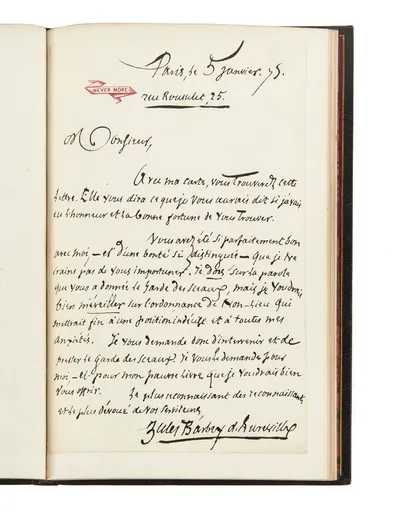 Paris, le 5 janvier. 75.
NEVER MORE
rue Rousselet, 25.
Monsieur,
Avec ma carte, vous trouverez cette
lettre. Elle vous dira ce que je vous aurais dit si j'avais
eu l'honneur et la bonne fortune de vous trouver.
Vous avez été si parfaitement bon
avec moi – et d'une bonté si distinguée – que je ne
crains pas de vous importuner. Je dors sur la parole
que vous a donnée le garde des sceaux, mais je voudrais
bien m'éveiller sur l'ordonnance de Non-lieu qui
mettrait fin à une position indécise et à toutes mes
anxiétés. Je vous demande donc d'intervenir et de
presser le garde des sceaux. Je vous le demande pour
moi, – et pour mon pauvre livre que je voudrais bien
vous offrir.
Le plus reconnaissant des reconnaissants
et le plus dévoué de vos serviteurs
Jules Barbey d'Aurevilly